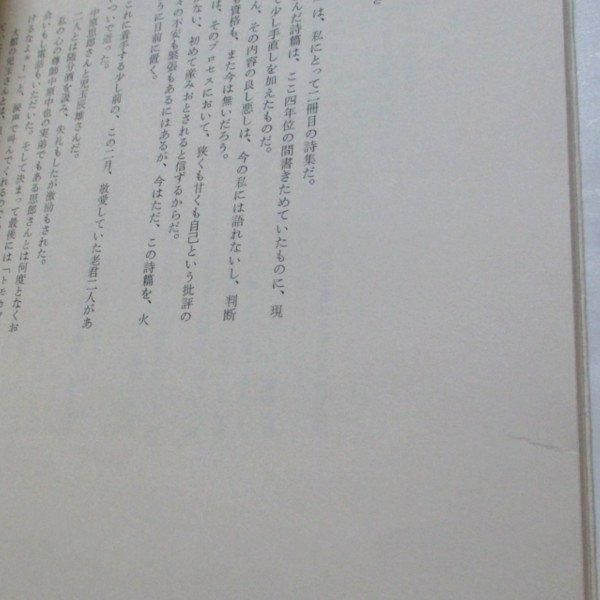 は、私にとって二冊目の詩集だ。
んだ詩篇は、ここ四年位の間書きためていたものに、現
で少し手直しを加えたものだ。
ん、その内容の良し悪しは、今の私には語れないし、判断
も資格も、また今は無いだろう。
は、そのプロセスにおいて、狭くも甘くも自己という批評の
ない、初めて産みおとされると信ずるからだ。
々の不安も緊張もあるにはあるが、今はただ、この詩篇を、火
うに目前に置く。
これに着手する少し前の、この二月、敬愛していた老君二人があ
ついで逝った。
中原思郎さんと児玉辰雄さんだ。
二人とは随分酒を汲み、失礼もしたが激励もされた。
私の心の尊師中原中也の実弟でもある思郎さんとは何度となくお
会いもし電話もいただいた。そして決まって最後には「トモカワ
けるなよぉー」と、涙声で叫んでくれるので